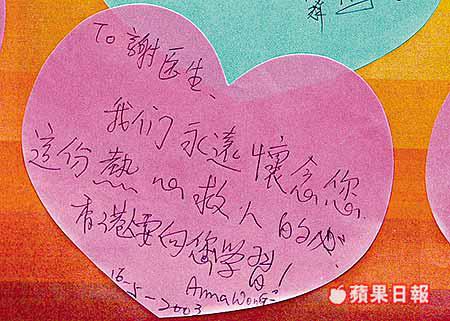 To 謝医生、
我们永遠懷念您
这份熱心救人的心.
香港要向您学習!
16-5-2003
Anna Wong
蘋果日報